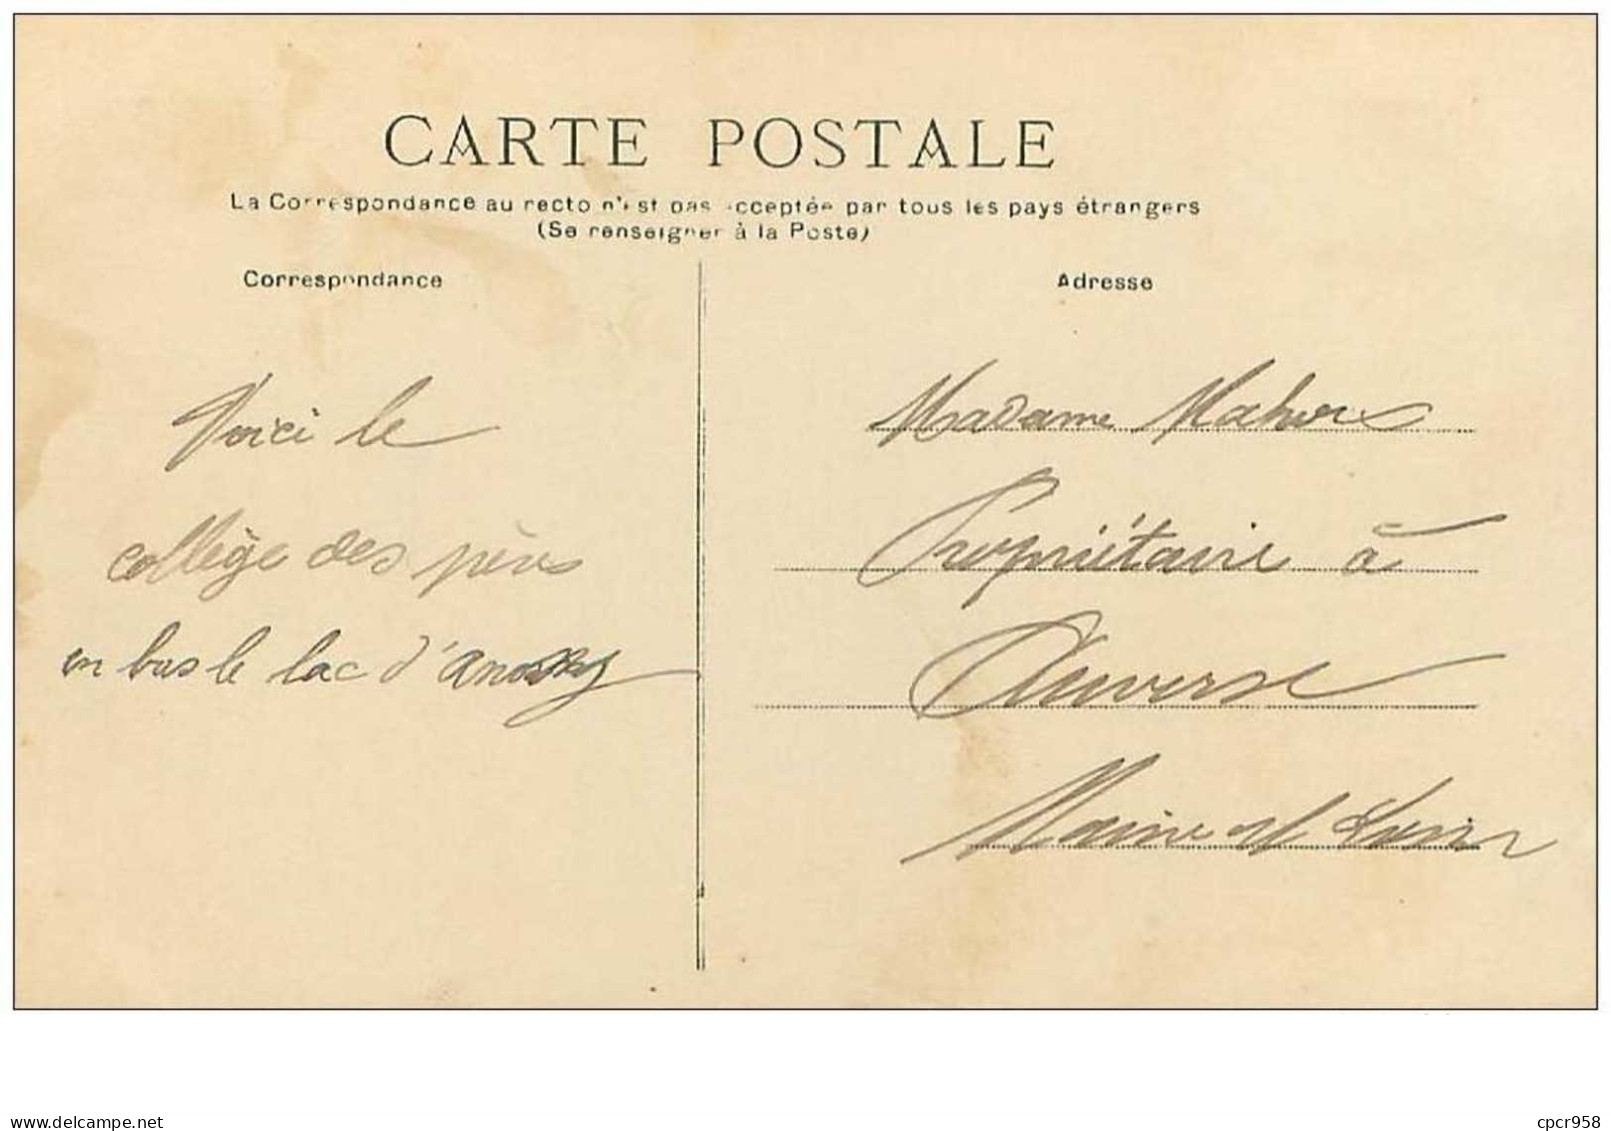 CARTE POSTALE
La Correspondance au recto n'est pas acceptée par tous les pays étrangers
(Se renseigner à la Poste)
Correspondance
Adresse
Voici le
collège des pères
en bas le lac d'anosy
Madame
Propriétaire à
Auverse
Maine et Loire
delcampe.net
cpcr958